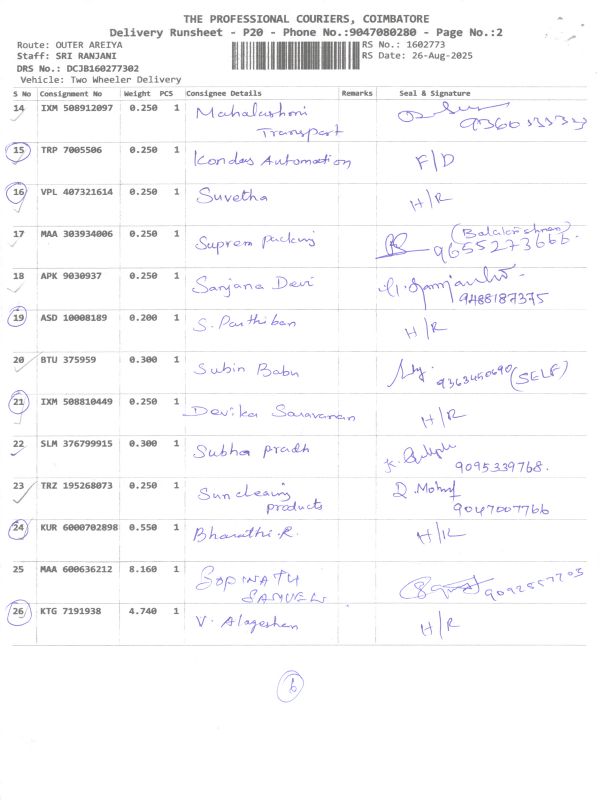 THE PROFESSIONAL COURIERS, COIMBATORE
Delivery Runsheet - P20 - Phone No.:9047080280 - Page No.:2
Route: OUTER AREIYA RS No.: 1602773
Staff: SRI RANJANI RS Date: 26-Aug-2025
DRS No.: DCJB160277302
Vehicle: Two Wheeler Delivery
S No Consignment No Weight PCS Consignee Details Remarks Seal & Signature
14 IXM 508912097 0.250 1 Mahalashmi
Transport
15 TRP 7005506 0.250 1 Kondas Automation F/D
16 VPL 407321614 0.250 1 Suvetha H/R
17 MAA 303934006 0.250 1 Suprem packing (Balakrishnan)
9655273666.
18 APK 9030937 0.250 1 Sanjana Devi
9488187375
19 ASD 10008189 0.200 1 S. Parthiban H/R
20 BTU 375959 0.300 1 Subin Babu 9363450690 (SELF)
21 IXM 508810449 0.250 1 Devika Saravanan H/R
22 SLM 376799915 0.300 1 Subha pradh
9095339768.
23 TRZ 195268073 0.250 1 Sun clearing
products 9047007766
24 KUR 6000702898 0.550 1 Bharathi.R. H/R
25 MAA 600636212 8.160 1 GOPINATH
SAMUEL
26 KTG 7191938 4.740 1 V. Alageshan H/R
6